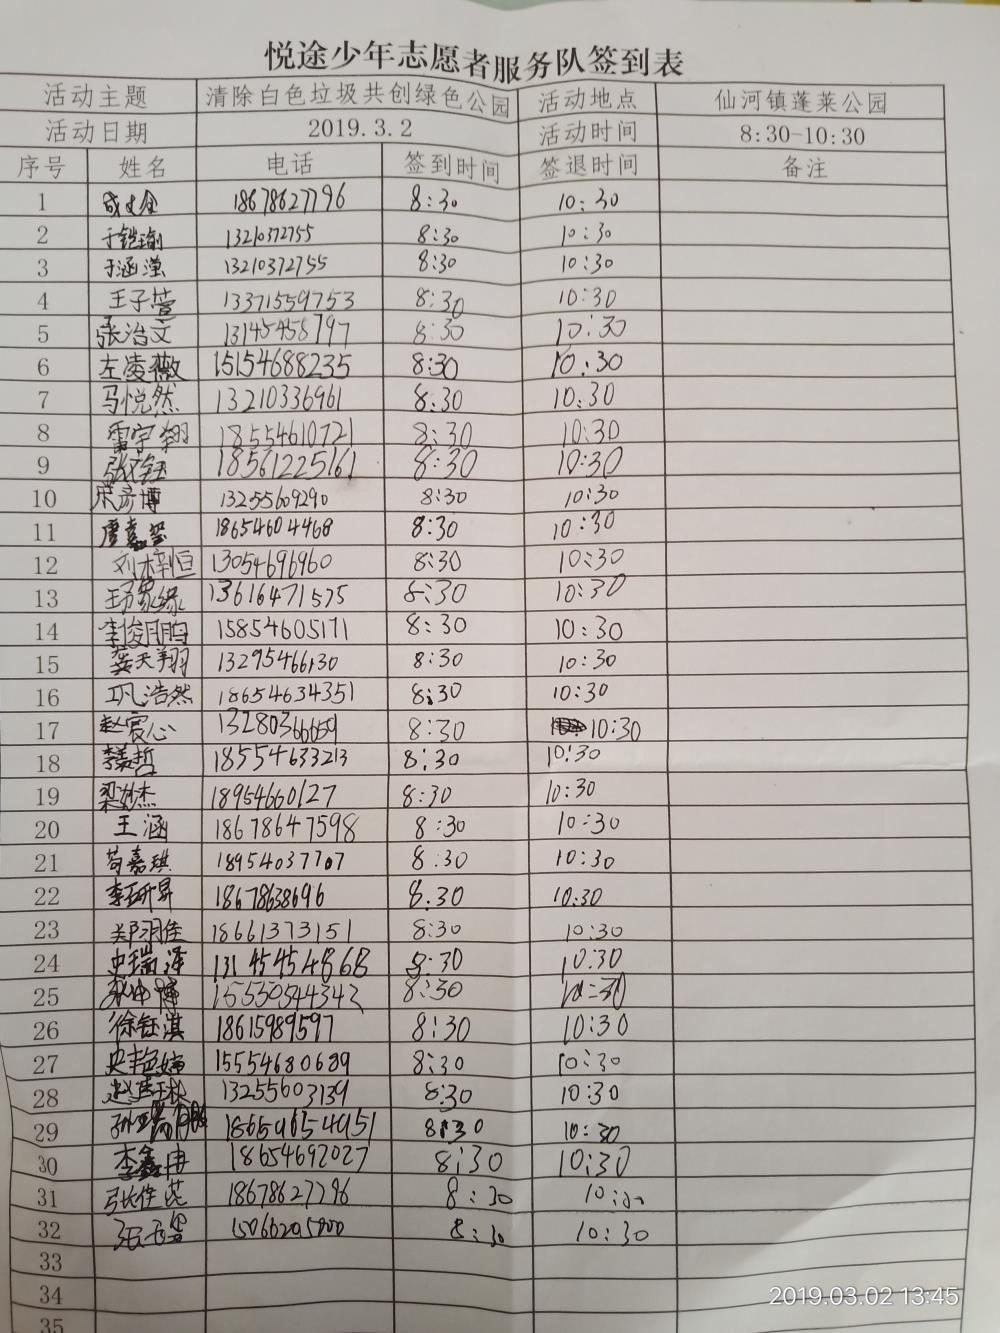 悦途少年志愿者服务队签到表
活动主题 清除白色垃圾共创绿色公园 活动地点 仙河镇蓬莱公园
活动日期 2019.3.2 活动时间 8:30-10:30
序号 姓名 电话 签到时间 签退时间 备注
1 18678627796 8:30 10:30
2 于铠瑜 13210372755 8:30 10:30
3 于涵滢 13210372755 8:30 10:30
4 王子萱 13371559753 8:30 10:30
5 张治文 13145458797 8:30 10:30
6 左凌薇 15154688235 8:30 10:30
7 马悦然 13210336961 8:30 10:30
8 雷宇翔 18554610721 8:30 10:30
9 张文钰 18561225161 8:30 10:30
10 宋彦博 13255609290 8:30 10:30
11 18654604468 8:30 10:30
12 刘梓恒 13054696960 8:30 10:30
13 13616471575 8:30 10:30
14 李俊鹏 15854605171 8:30 10:30
15 龚天翔 13295466130 8:30 10:30
16 巩浩然 18654634351 8:30 10:30
17 赵宸心 13280366659 8:30 10:30
18 18554633213 8:30 10:30
19 18954660127 8:30 10:30
20 王涵 18678647598 8:30 10:30
21 苟嘉琪 18954037707 8:30 10:30
22 李研昇 18678638696 8:30 10:30
23 郑羽佳 18661373151 8:30 10:30
24 史瑞泽 13145454868 8:30 10:30
25 15550544342 8:30 10:30
26 徐钰淇 18615989597 8:30 10:30
27 15554680689 8:30 10:30
28 13255603139 8:30 10:30
29 8:30 10:30
30 李鑫冉 18654692027 8:30 10:30
31 张佳芘 18678627796 8:30 10:30
32 8:30 10:30
33
34
35
2019.03.02 13:45